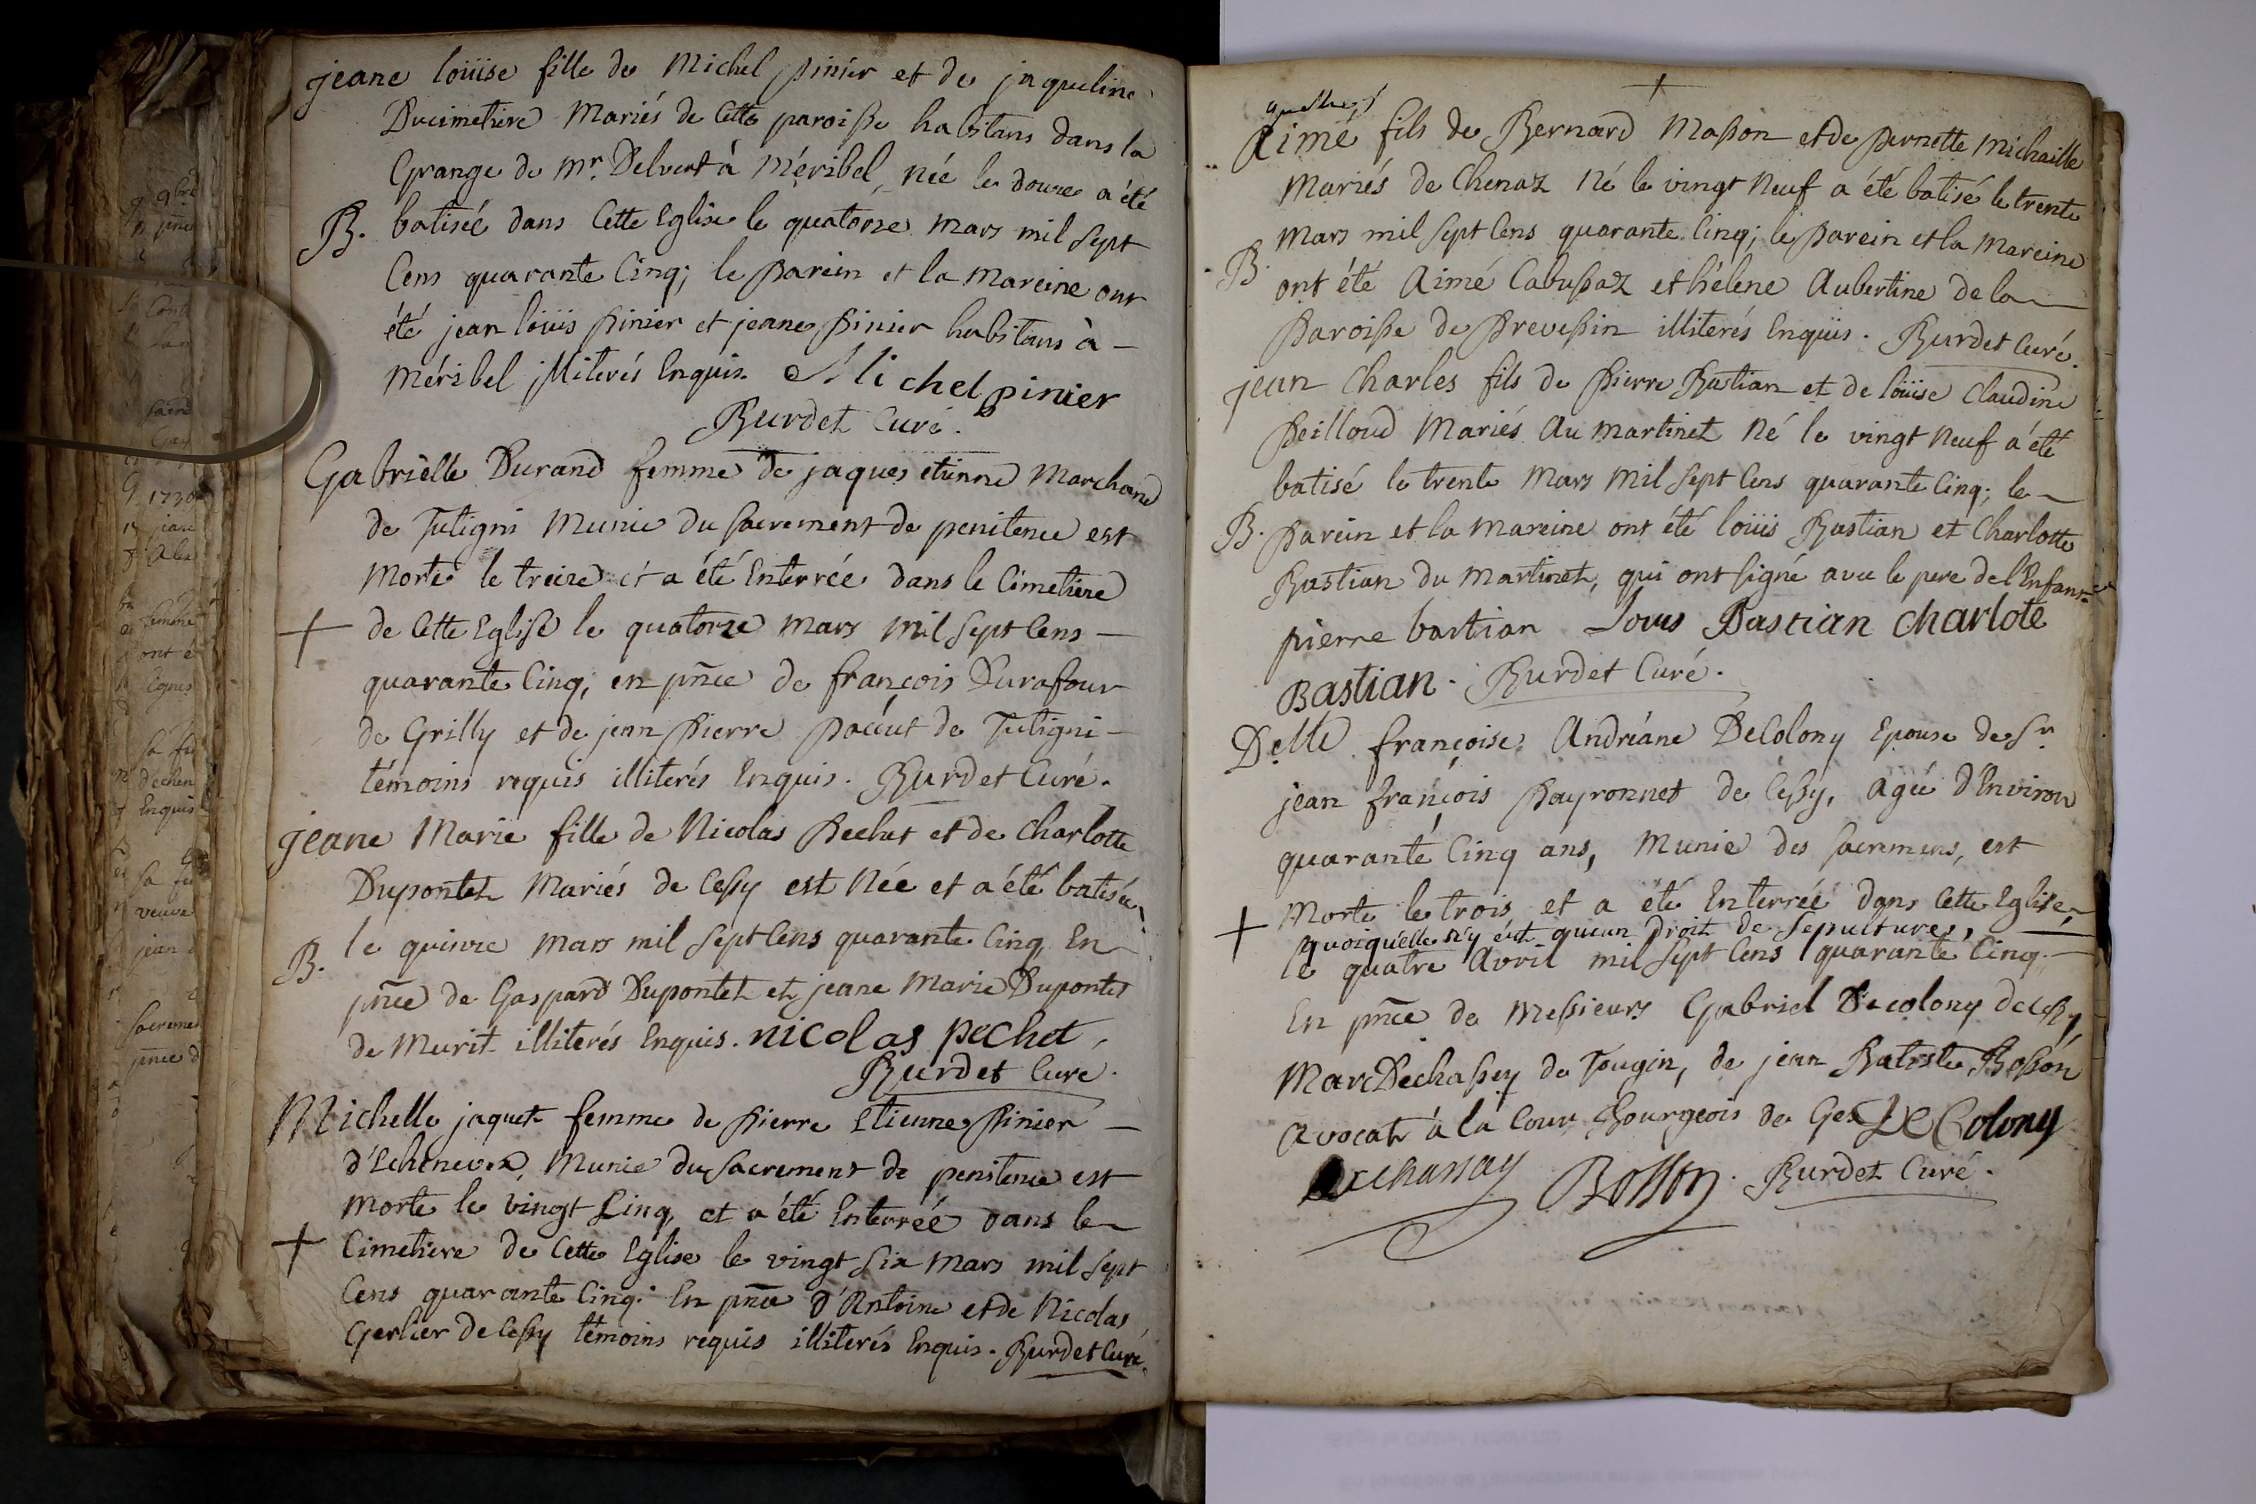 jeane loüise fille de Michel pinier et de jaqueline
Ducimetiere Mariés de Cette paroisse habitans dans la
Grange de Mr. Delvert à Méribel, Née le douze a été
B. batiseé dans Cette Eglise le quatorze Mars mil Sept
Cens quarante Cinq; le parein et la Mareine ont
été jean loüis pinier et jeane pinier habitans à –
Méribel illiterés Enquis. Michel pinier
Burdet Curé.
Gabrielle Durand femme de jaques etienne Marchand
de Tutigni Munie du Sacrement de penitence est
Morte le treize et a été Enterrée dans le Cimetiere
+ de Cette Eglise le quatorze Mars Mil Sept Cens –
quarante Cinq; en pñce de françois Durafour
de Grilly et de jean pierre pacùt de Tutigni –
témoins requis illiterés Enquis. Burdet Curé.
jeane Marie fille de Nicolas Pechet et de Charlotte
Dupontet Mariés de Cessy est Née et a été batisée
B. le quinze Mars mil Sept Cens quarante Cinq, En
pñce de Gaspard Dupontet et jeane Marie Dupontet
de Murit illiterés Enquis. nicolas pechet,
Burdet Curé.
Michelle jaquet femme de pierre Etienne pinier –
d'Echenevex, Munie du Sacrement de penitence est
Morte le vingt Cinq, et a été Enterreé dans le
+ Cimetiere de Cette Eglise le vingt Six Mars mil Sept
Cens quarante Cinq. En pñce d'Antoine et de Nicolas
Gerlier de Cessy témoins requis illiterés Enquis. Burdet Curé.
+
Aimé fils de Bernard Masson et de pernette Michaille
Mariés de Chenaz Né le vingt Neuf a été batisé le trente
Mars mil Sept Cens quarante Cinq; le parein et la Mareine
B. ont été Aimé Cabussaz et hélene Aubertine de la
paroisse de prevessin illiterés Enquis. Burdet Curé.
jean Charles fils de pierre Bastian et de loüise Claudine
peilloud Mariés Au Martinet Né le vingt Neuf a été
batisé le trente Mars Mil Sept Cens quarante Cinq; le –
B. parein et la Mareine ont été loüis Bastian et Charlotte
Bastian du Martinet, qui ont Signé avec le pere de l'Enfant
pierre bastian Louis Bastian Charlote
Bastian. Burdet Curé.
Delle françoise Andriane DeColony Epouse de Sr
jean françois payronnet de Cessy, ageé d'Environ
quarante Cinq ans, Munie des Sacremens, est
+ Morte le trois et a été Enterrée dans Cette Eglise,
quoiqu'elle n'y eut aucun Droit de Sepulture,
le quatre Avril mil Sept Cens quarante Cinq. –
En pñce de Messieurs Gabriel Decolony de Cessy,
Marc Dechassey de Tougin, de jean Batiste Bosson
Avocat à la Cour Bourgeois de Gex DeColony
Dechassay Bosson. Burdet Curé.